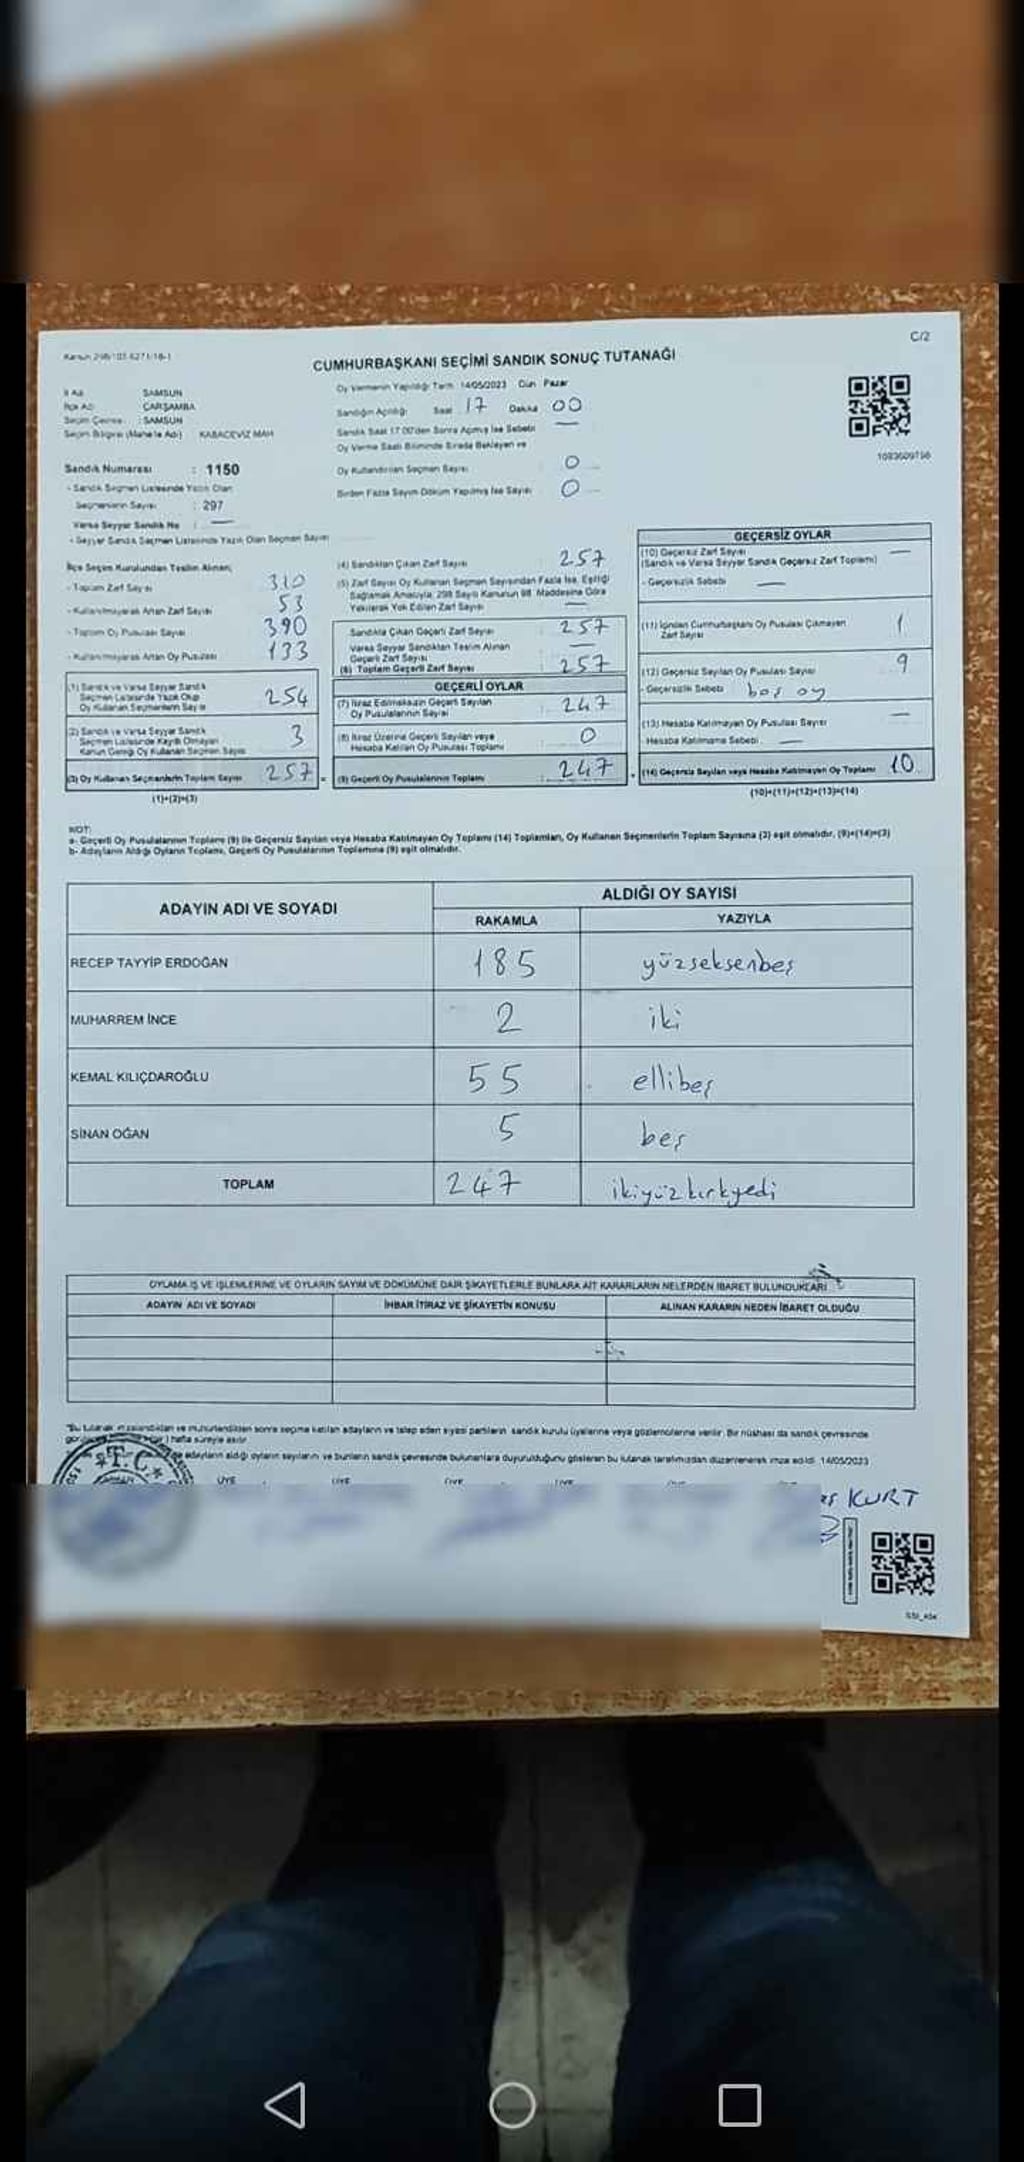 C/2
Kanun 298/103-6271/16-1
CUMHURBAŞKANI SEÇİMİ SANDIK SONUÇ TUTANAĞI
İl Adı : SAMSUN
İlçe Adı : ÇARŞAMBA
Seçim Çevresi : SAMSUN
Seçim Bölgesi (Mahalle Adı) : KABACEVİZ MAH
Sandık Numarası : 1150
- Sandık Seçmen Listesinde Yazılı Olan
Seçmenlerin Sayısı : 297
Varsa Seyyar Sandık No : —
- Seyyar Sandık Seçmen Listesinde Yazılı Olan Seçmen Sayısı
Oy Vermenin Yapıldığı Tarih 14/05/2023 Gün Pazar
Sandığın Açıldığı: Saat 17 Dakika 00
Sandık Saat 17.00'den Sonra Açılmış İse Sebebi —
Oy Verme Saati Bitiminde Sırada Bekleyen ve
Oy Kullandırılan Seçmen Sayısı 0
Birden Fazla Sayım Döküm Yapılmış İse Sayısı 0
1093609756
İlçe Seçim Kurulundan Teslim Alınan;
- Toplam Zarf Sayısı 310
- Kullanılmayarak Artan Zarf Sayısı 53
- Toplam Oy Pusulası Sayısı 390
- Kullanılmayarak Artan Oy Pusulası 133
(1) Sandık ve Varsa Seyyar Sandık
Seçmen Listesinde Yazılı Olup
Oy Kullanan Seçmenlerin Sayısı 254
(2) Sandık ve Varsa Seyyar Sandık
Seçmen Listesinde Kayıtlı Olmayan
Kanun Gereği Oy Kullanan Seçmen Sayısı 3
(3) Oy Kullanan Seçmenlerin Toplam Sayısı 257 =
(1)+(2)=(3)
(4) Sandıktan Çıkan Zarf Sayısı 257
(5) Zarf Sayısı Oy Kullanan Seçmen Sayısından Fazla İse, Eşitliği
Sağlamak Amacıyla, 298 Sayılı Kanunun 98. Maddesine Göre
Yakılarak Yok Edilen Zarf Sayısı —
Sandıkta Çıkan Geçerli Zarf Sayısı 257
Varsa Seyyar Sandıktan Teslim Alınan
Geçerli Zarf Sayısı —
(6) Toplam Geçerli Zarf Sayısı 257
GEÇERLİ OYLAR
(7) İtiraz Edilmeksizin Geçerli Sayılan
Oy Pusulalarının Sayısı 247
(8) İtiraz Üzerine Geçerli Sayılan veya
Hesaba Katılan Oy Pusulası Toplamı 0
(9) Geçerli Oy Pusulalarının Toplamı : 247 +
GEÇERSİZ OYLAR
(10) Geçersiz Zarf Sayısı —
(Sandık ve Varsa Seyyar Sandık Geçersiz Zarf Toplamı)
- Geçersizlik Sebebi —
(11) İçinden Cumhurbaşkanı Oy Pusulası Çıkmayan
Zarf Sayısı 1
(12) Geçersiz Sayılan Oy Pusulası Sayısı 9
- Geçersizlik Sebebi boş oy
(13) Hesaba Katılmayan Oy Pusulası Sayısı —
- Hesaba Katılmama Sebebi —
(14) Geçersiz Sayılan veya Hesaba Katılmayan Oy Toplamı 10
(10)+(11)+(12)+(13)=(14)
NOT:
a- Geçerli Oy Pusulalarının Toplamı (9) ile Geçersiz Sayılan veya Hesaba Katılmayan Oy Toplamı (14) Toplamları, Oy Kullanan Seçmenlerin Toplam Sayısına (3) eşit olmalıdır, (9)+(14)=(3)
b- Adayların Aldığı Oyların Toplamı, Geçerli Oy Pusulalarının Toplamına (9) eşit olmalıdır.
ADAYIN ADI VE SOYADI
ALDIĞI OY SAYISI
RAKAMLA YAZIYLA
RECEP TAYYİP ERDOĞAN 185 yüzseksenbeş
MUHARREM İNCE 2 iki
KEMAL KILIÇDAROĞLU 55 ellibeş
SİNAN OĞAN 5 beş
TOPLAM 247 ikiyüzkırkyedi
OYLAMA İŞ VE İŞLEMLERİNE VE OYLARIN SAYIM VE DÖKÜMÜNE DAİR ŞİKAYETLERLE BUNLARA AİT KARARLARIN NELERDEN İBARET BULUNDUKLARI
ADAYIN ADI VE SOYADI İHBAR İTİRAZ VE ŞİKAYETİN KONUSU ALINAN KARARIN NEDEN İBARET OLDUĞU
"Bu tutanak imzalandıktan ve mühürlendikten sonra seçime katılan adayların ve talep eden siyasi partilerin sandık kurulu üyelerine veya gözlemcilerine verilir. Bir nüshası da sandık çevresinde
hafta süreyle asılır.
adayların aldığı oyların sayılarını ve bunların sandık çevresinde bulunanlara duyurulduğunu gösteren bu tutanak tarafımızdan düzenlenerek imza edildi. 14/05/2023
T.C.
ÜYE ÜYE ÜYE ÜYE
KURT